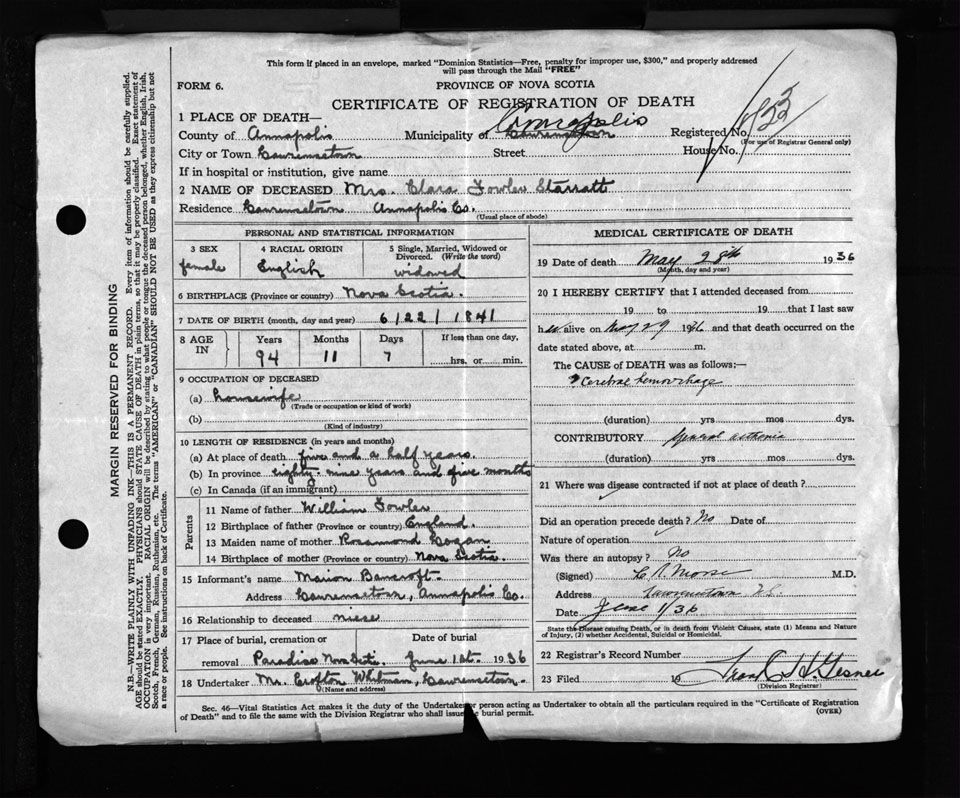 This form if placed in an envelope, marked "Dominion Statistics—Free, penalty for improper use, $300," and properly addressed
will pass through the Mail "FREE"
FORM 6.
PROVINCE OF NOVA SCOTIA
CERTIFICATE OF REGISTRATION OF DEATH
1 PLACE OF DEATH—
Annapolis
County of Annapolis Municipality of Registered No.
(For use of Registrar General only)
City or Town Lawrencetown Street House No.
If in hospital or institution, give name
2 NAME OF DECEASED Mrs. Clara Fowler Starratt
Residence Lawrencetown Annapolis Co.
(Usual place of abode)
PERSONAL AND STATISTICAL INFORMATION
3 SEX 4 RACIAL ORIGIN 5 Single, Married, Widowed or Divorced. (Write the word)
female English widowed
6 BIRTHPLACE (Province or country) Nova Scotia.
7 DATE OF BIRTH (month, day and year) 6/22/1841
8 AGE IN Years Months Days If less than one day,
94 11 7 hrs. or min.
9 OCCUPATION OF DECEASED
(a) housewife
(Trade or occupation or kind of work)
(b)
(Kind of industry)
10 LENGTH OF RESIDENCE (in years and months)
(a) At place of death five and a half years.
(b) In province eighty-nine years and five months
(c) In Canada (if an immigrant)
Parents
11 Name of father William Fowler
12 Birthplace of father (Province or country) England.
13 Maiden name of mother Rosamond
14 Birthplace of mother (Province or country) Nova Scotia.
15 Informant's name Marion Bancroft.
Address Lawrencetown, Annapolis Co.
16 Relationship to deceased niese
17 Place of burial, cremation or Date of burial
removal Paradise Nova Scotia. June 1st. 1936
18 Undertaker Mr. Crofton Whitman, Lawrencetown.
(Name and address)
MEDICAL CERTIFICATE OF DEATH
19 Date of death May 28th 1936
(Month, day and year)
20 I HEREBY CERTIFY that I attended deceased from
19 to 19 that I last saw
her alive on May 29 1936 and that death occurred on the
date stated above, at m.
The CAUSE OF DEATH was as follows:—
Cerebral hemorrhage
(duration) yrs mos dys.
CONTRIBUTORY General asthenia
(duration) yrs mos dys.
21 Where was disease contracted if not at place of death?
Did an operation precede death? No Date of
Nature of operation
Was there an autopsy? No
(Signed) Morse M.D.
Address Lawrencetown N.S.
Date June 1/36
State the Disease causing Death, or in death from Violent Causes, state (1) Means and Nature
of Injury, (2) whether Accidental, Suicidal or Homicidal.
22 Registrar's Record Number
23 Filed 19 H. Gesner
(Division Registrar)
Sec. 46—Vital Statistics Act makes it the duty of the Undertaker or person acting as Undertaker to obtain all the particulars required in the "Certificate of Registration
of Death" and to file the same with the Division Registrar who shall issue the burial permit.
(OVER)
MARGIN RESERVED FOR BINDING
N.B.—WRITE PLAINLY WITH UNFADING INK—THIS IS A PERMANENT RECORD. Every item of information should be carefully supplied.
AGE should be stated EXACTLY. PHYSICIANS should STATE CAUSE OF DEATH in plain terms, so that it may be properly classified. Exact statement of
OCCUPATION is very important. RACIAL ORIGIN will be described by stating to what people or tongue the deceased person belonged, whether English, Irish,
Scotch, French, German, Russian, Ruthenian, etc. The terms "AMERICAN" or "CANADIAN" SHOULD NOT BE USED as they express citizenship but not
a race or people. See instructions on back of Certificate.